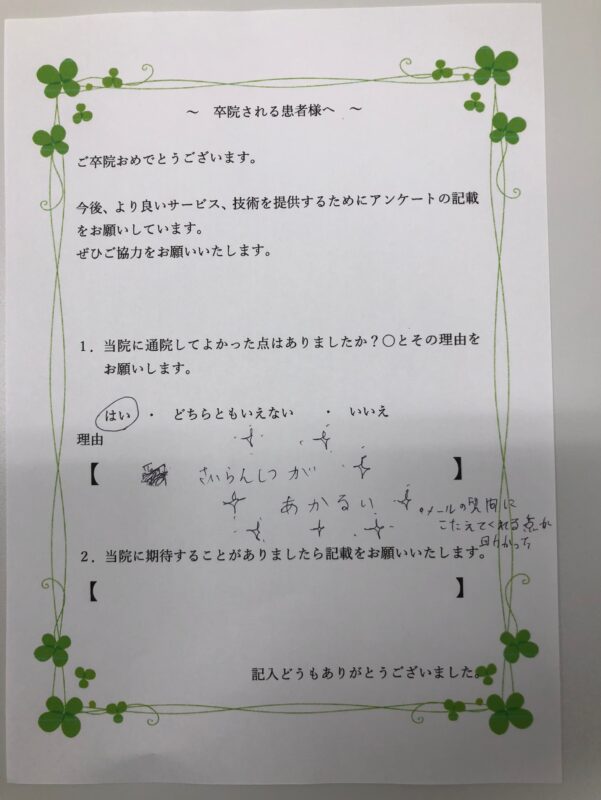 ～　卒院される患者様へ　～
ご卒院おめでとうございます。
今後、より良いサービス、技術を提供するためにアンケートの記載
をお願いしています。
ぜひご協力をお願いいたします。
１．当院に通院してよかった点はありましたか？〇とその理由を
お願いします。
はい　・　どちらともいえない　・　いいえ
理由
【　さいらんしつが　】
あかるい
メールの質問に
こたえてくれる点が
２．当院に期待することがありましたら記載をお願いいたします。
【　】
記入どうもありがとうございました。